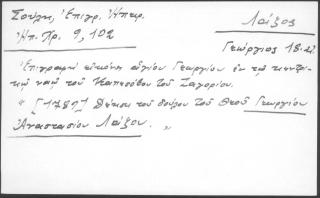 Σούλη, Ἐπιγρ. Ἠπειρ.
Λάϊος
Ἠπ. Χρ. 9, 102
Γεώργιος 18
Ἐπιγραφὴ εἰκόνος ἁγίου Γεωργίου ἐν τῷ κεντρι-
κῷ ναῷ τοῦ Καπεσόβου τοῦ Ζαγορίου.
" [1789] Δέησις τοῦ δούλου τοῦ Θεοῦ Γεωργίου
Ἀναστασίου Λάϊου. "